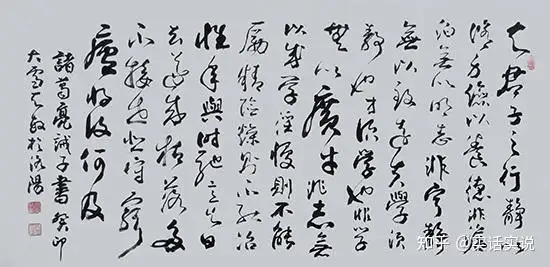 夫君子之行靜以
修身儉以養德非淡
泊無以明志非寧靜
無以致遠夫學須
靜也才須學也非學
無以廣才非志無
以成學淫慢則不能
勵精險躁則不能治
性年與時馳意與日
去遂成枯落多
不接世悲守窮
廬將復何及
諸葛亮誡子書癸卯
大雪敏於洛陽
知乎 @实话实说